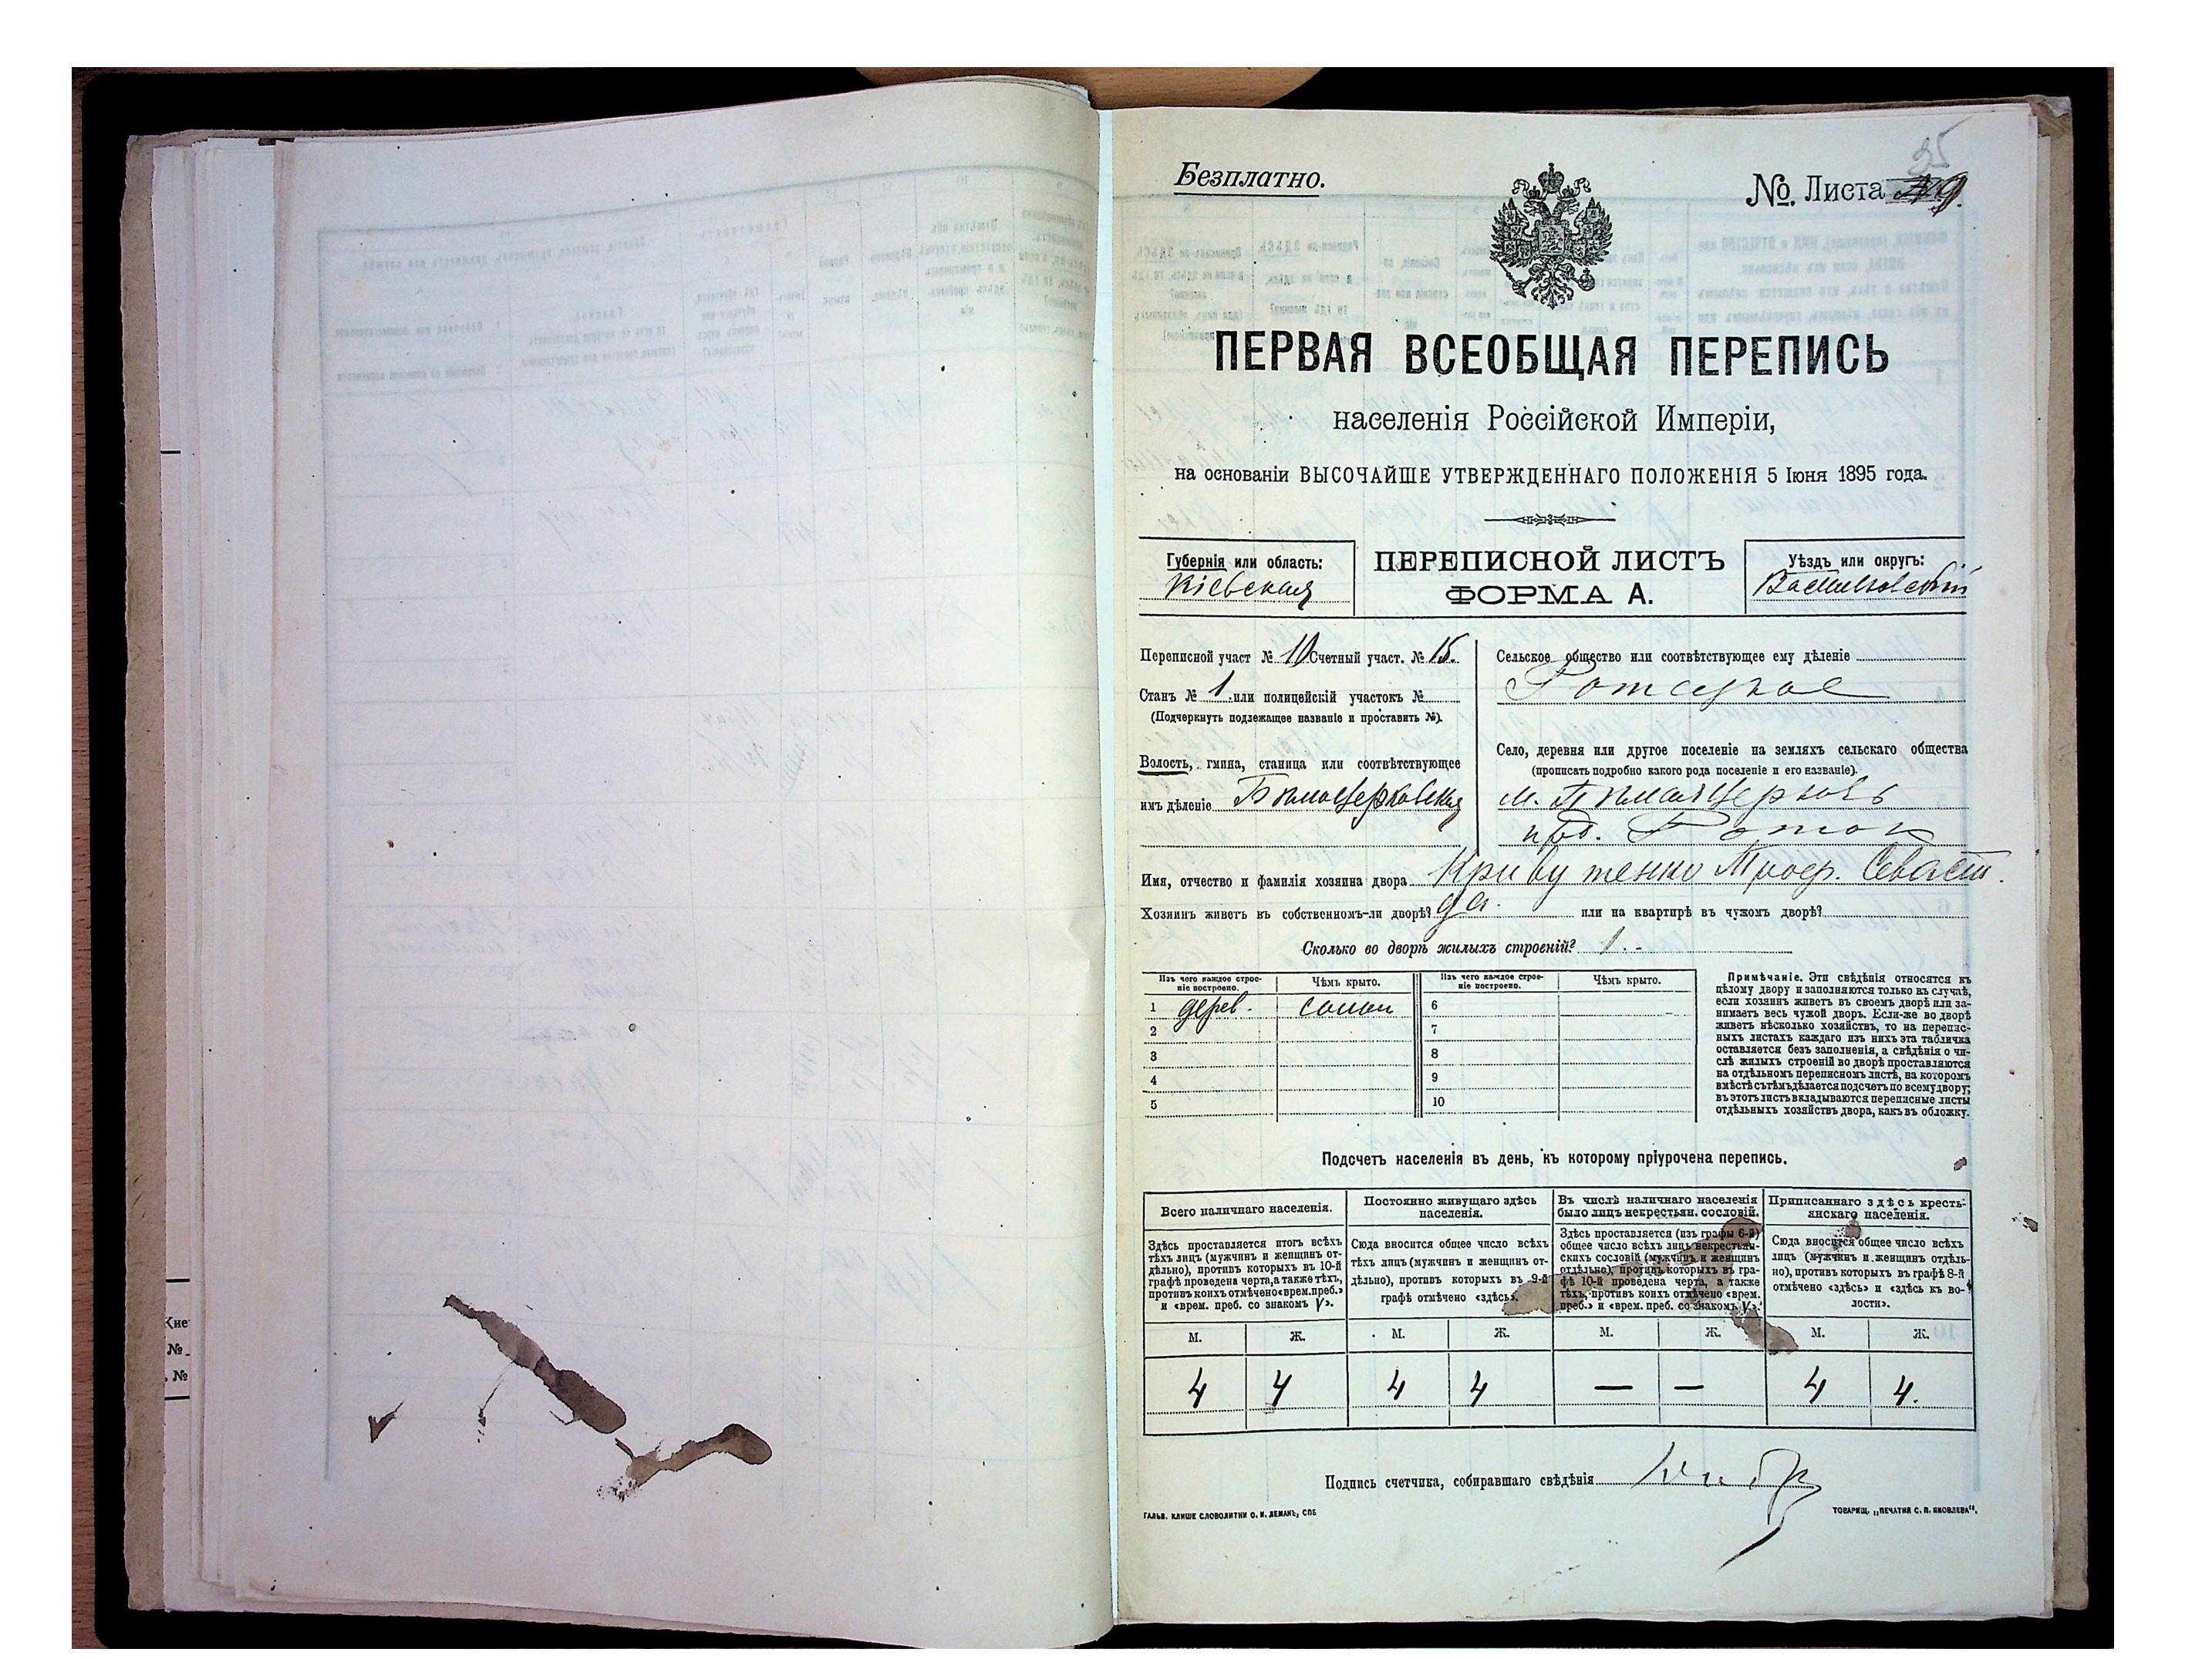 Безплатно.
№. Листа
35
ПЕРВАЯ ВСЕОБЩАЯ ПЕРЕПИСЬ
населенія Россійской Имперіи,
на основаніи ВЫСОЧАЙШЕ УТВЕРЖДЕННАГО ПОЛОЖЕНІЯ 5 Іюня 1895 года.
Губернія или область:
Кіевская
ПЕРЕПИСНОЙ ЛИСТЪ
ФОРМА А.
Уѣздъ или округъ:
Васильковскій
Переписной участ № 10 Счетный участ. № 15.
Станъ № 1 или полицейскій участокъ №
(Подчеркнуть подлежащее названіе и проставить №).
Волость, гмина, станица или соотвѣтствующее
имъ дѣленіе Бѣлоцерковская
Сельское общество или соотвѣтствующее ему дѣленіе
Село, деревня или другое поселеніе на земляхъ сельскаго общества
(прописать подробно какого рода поселеніе и его названіе).
м. Бѣлая Церковь
Имя, отчество и фамилія хозяина двора Кривутенко
Хозяинъ живетъ въ собственномъ-ли дворѣ? да. или на квартирѣ въ чужомъ дворѣ?
Сколько во дворѣ жилыхъ строеній? 1.-
Изъ чего каждое строе-
ніе построено.
Чѣмъ крыто.
Изъ чего каждое строе-
ніе построено.
Чѣмъ крыто.
1 дерев. солом 6
2 7
3 8
4 9
5 10
Примѣчаніе. Эти свѣдѣнія относятся къ
цѣлому двору и заполняются только въ случаѣ,
если хозяинъ живетъ въ своемъ дворѣ или за-
нимаетъ весь чужой дворъ. Если-же во дворѣ
живетъ нѣсколько хозяйствъ, то на перепис-
ныхъ листахъ каждаго изъ нихъ эта табличка
оставляется безъ заполненія, а свѣдѣнія о чи-
слѣ жилыхъ строеній во дворѣ проставляются
на отдѣльномъ переписномъ листѣ, на которомъ
вмѣстѣ съ тѣмъ дѣлается подсчетъ по всему двору;
въ этотъ листъ вкладываются переписные листы
отдѣльныхъ хозяйствъ двора, какъ въ обложку.
Подсчетъ населенія въ день, къ которому пріурочена перепись.
Всего наличнаго населенія.
Постоянно живущаго здѣсь
населенія.
Въ числѣ наличнаго населенія
было лицъ некрестьян. сословій.
Приписаннаго здѣсь кресть-
янскаго населенія.
Здѣсь проставляется итогъ всѣхъ
тѣхъ лицъ (мужчинъ и женщинъ от-
дѣльно), противъ которыхъ въ 10-й
графѣ проведена черта, а также тѣхъ,
противъ коихъ отмѣчено «врем. преб.»
и «врем. преб. со знакомъ V».
Сюда вносится общее число всѣхъ
тѣхъ лицъ (мужчинъ и женщинъ от-
дѣльно), противъ которыхъ въ 9-й
графѣ отмѣчено «здѣсь».
Здѣсь проставляется (изъ графы 6-й)
общее число всѣхъ лицъ некрестьян-
скихъ сословій (мужчинъ и женщинъ
отдѣльно), противъ которыхъ въ гра-
фѣ 10-й проведена черта, а также
тѣхъ, противъ коихъ отмѣчено «врем.
преб.» и «врем. преб. со знакомъ V».
Сюда вносится общее число всѣхъ
лицъ (мужчинъ и женщинъ отдѣль-
но), противъ которыхъ въ графѣ 8-й
отмѣчено «здѣсь» и «здѣсь къ во-
лости».
М. Ж. М. Ж. М. Ж. М. Ж.
4 4 4 4 — — 4 4.
Подпись счетчика, собиравшаго свѣдѣнія
ГАЛЬВ. КЛИШЕ СЛОВОЛИТНИ О. И. ЛЕМАНЪ, СПБ
ТОВАРИЩ. „ПЕЧАТНЯ С. П. ЯКОВЛЕВА".